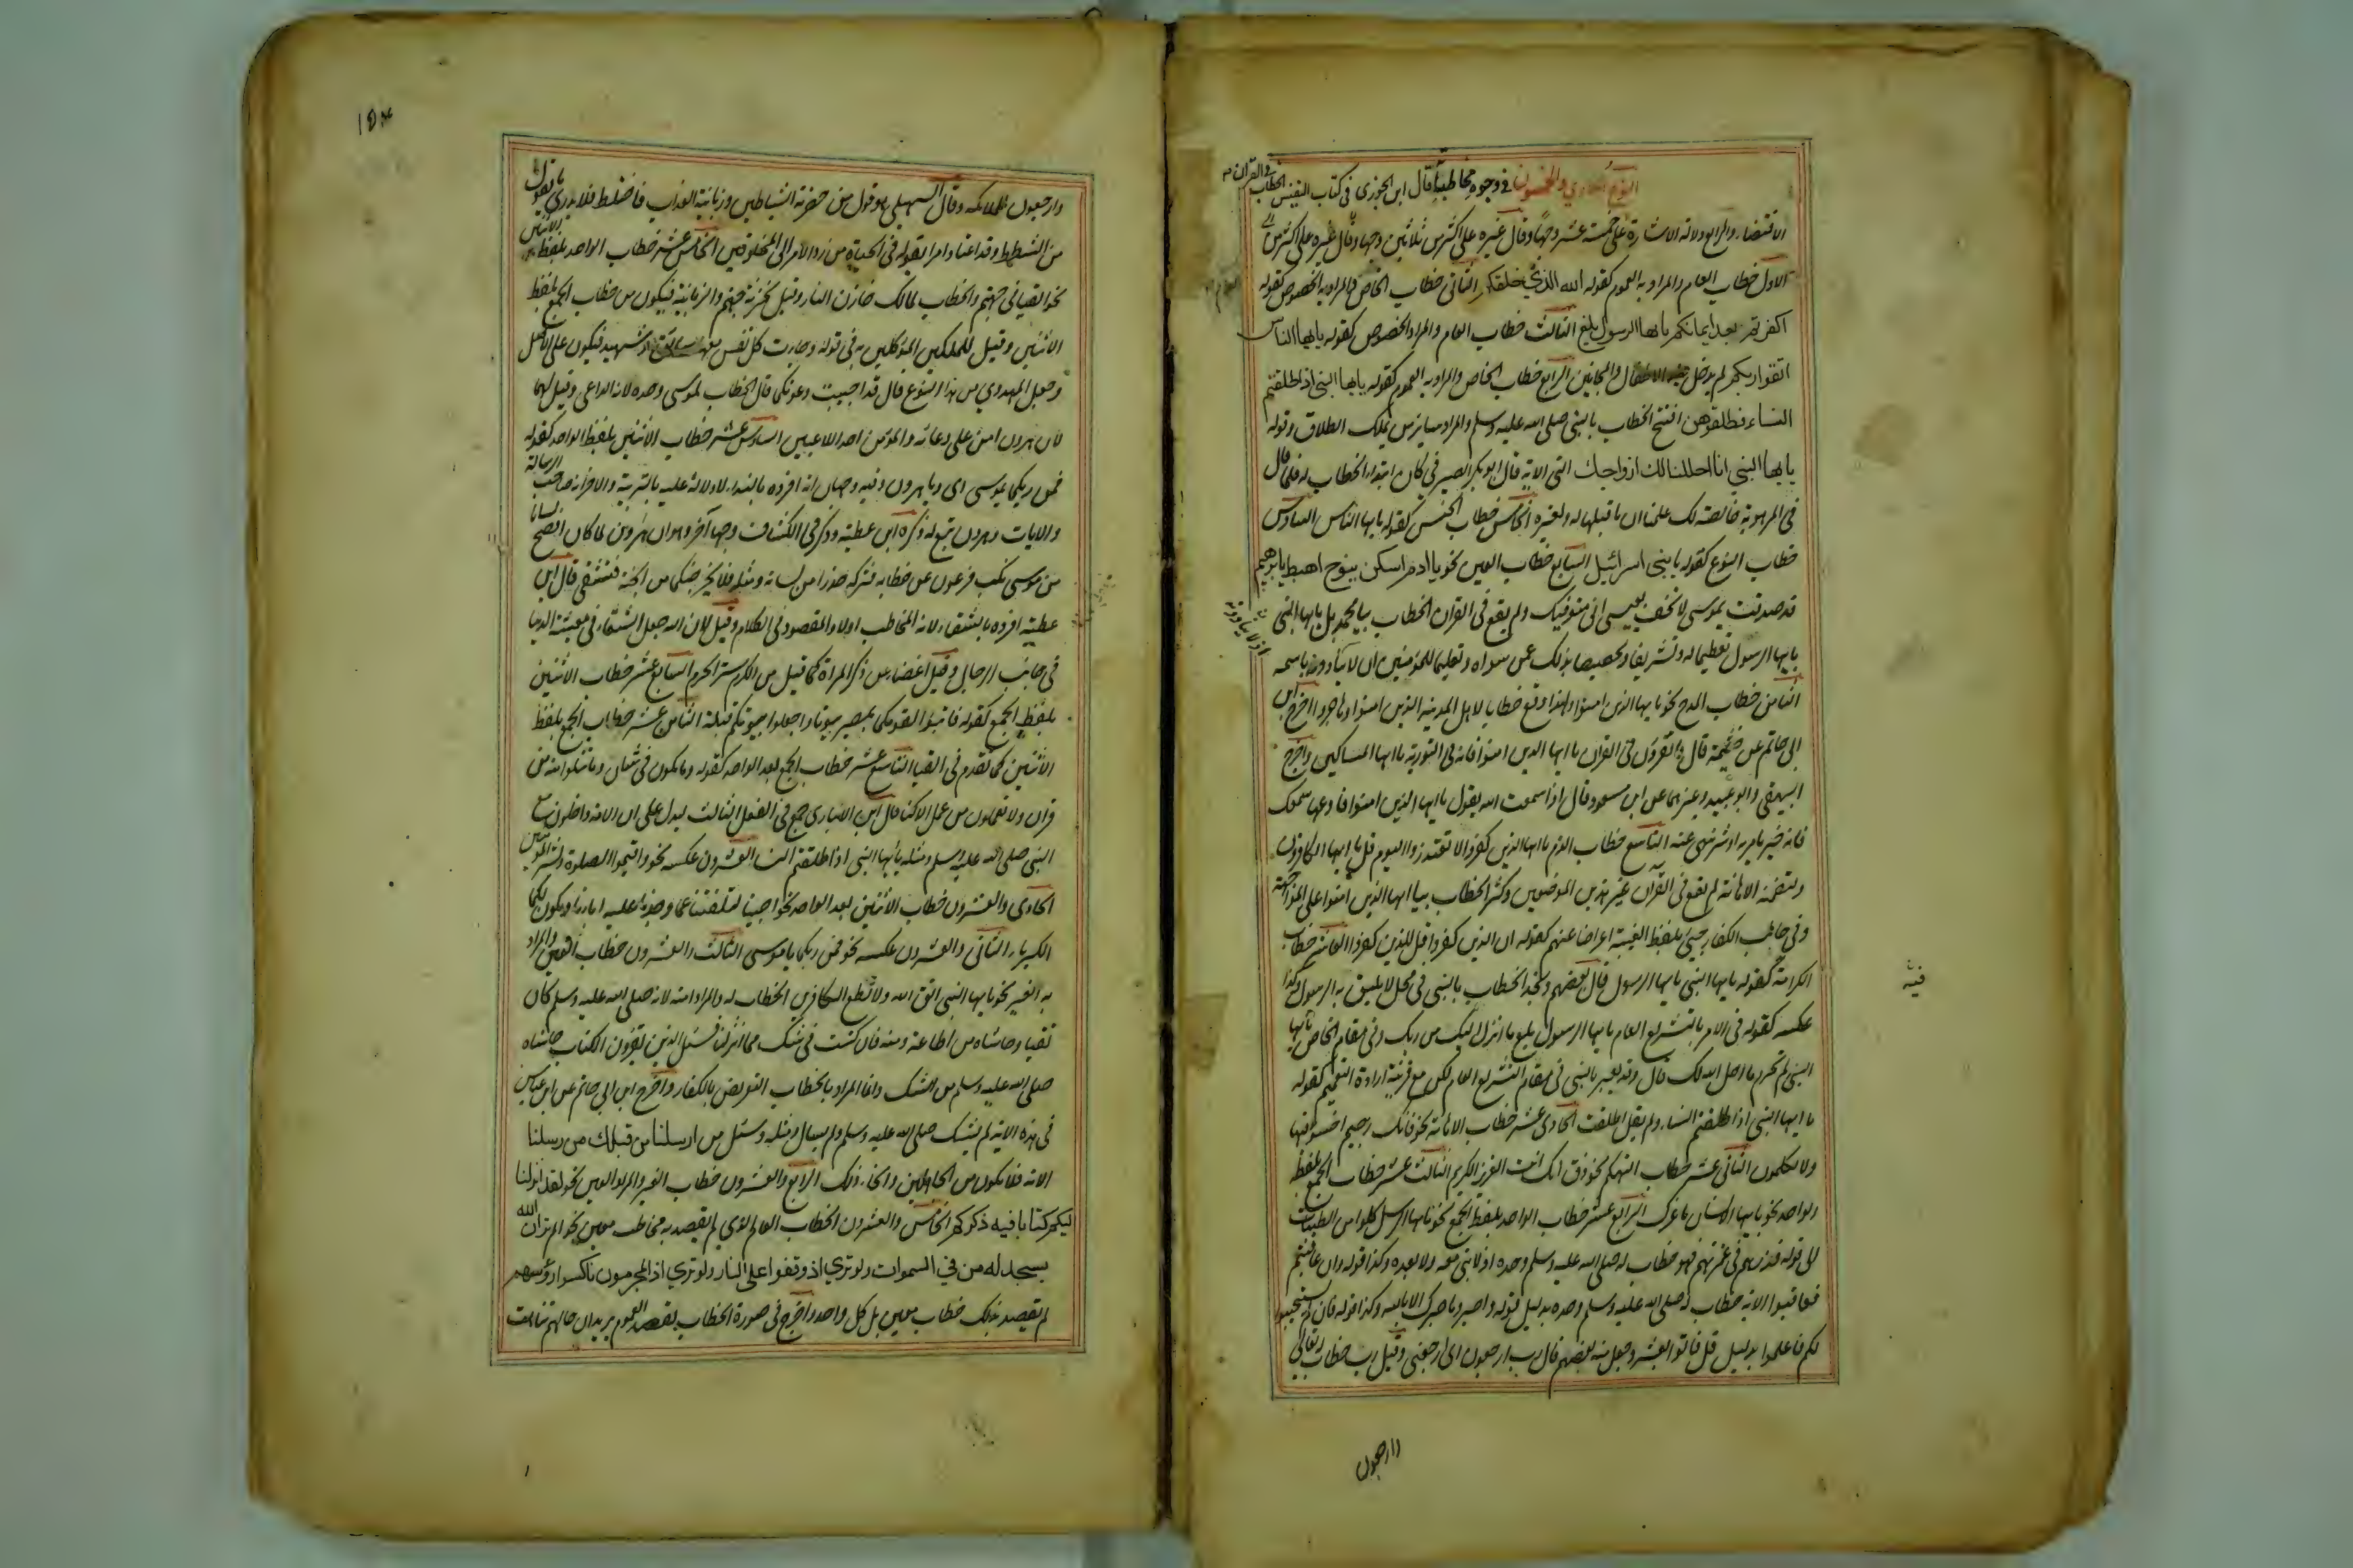 النوع الحادي والخمسون في وجوه مخاطباته قال ابن الجوزي في كتاب النفيس الخطاب في القرآن
على خمسة عشر وجها وقال غيره على اكثر من ثلاثين وجها
الاول خطاب العام والمراد به العموم كقوله الله الذي خلقكم الثاني خطاب الخاص والمراد به الخصوص كقوله
اكفرتم بعد ايمانكم يايها الرسول بلغ الثالث خطاب العام والمراد الخصوص كقوله يايها الناس
اتقوا ربكم لم يدخل فيه الاطفال والمجانين الرابع خطاب الخاص والمراد به العموم كقوله يايها النبي اذا طلقتم
النساء فطلقوهن افتتح الخطاب بالنبي صلى الله عليه وسلم والمراد سائر من يملك الطلاق وقوله
يايها النبي انا احللنا لك ازواجك التي الاية قال ابو بكر الصيرفي كان ابتداء الخطاب له فلما قال
في الموهوبة خالصة لك علمنا ان ما قبلها له ولغيره الخامس خطاب الجنس كقوله يايها الناس السادس
خطاب النوع كقوله يا بني اسرائيل السابع خطاب العين نحو يا ادم اسكن ينوح اهبط يابرهيم
قد صدقت يموسى لا تخف يعيسى اني متوفيك ولم يقع في القران الخطاب بيا محمد بل يايها النبي
يايها الرسول تعظيما له وتشريفا وتخصيصا بذلك عمن سواه وتعليما للمؤمنين ان لا ينادوه باسمه
الثامن خطاب المدح نحو يايها الذين امنوا ولهذا وقع خطابا لاهل المدينة الذين امنوا وهاجروا اخرج ابن
ابي حاتم عن خيثمة قال ما تقرؤن في القران يا ايها الذين امنوا فانه في التورية يا ايها المساكين واخرج
البيهقي وابو عبيد وغيرهما عن ابن مسعود قال اذا سمعت الله يقول يا ايها الذين امنوا فاوعها سمعك
فانه خير يامر به او شر ينهى عنه التاسع خطاب الذم يا ايها الذين كفروا لا تعتذروا اليوم قل يا ايها الكافرون
ولتضمنه الاهانة لم يقع في القرآن غير هذين الموضعين وكثر الخطاب بيا ايها الذين امنوا على المواجهة
وفي جانب الكفار جيء بلفظ الغيبة اعراضا عنهم كقوله ان الذين كفروا قل للذين كفروا العاشر خطاب
الكرامة كقوله يايها النبي يايها الرسول قال بعضهم ونجد الخطاب بالنبي في محل لا يليق به الرسول وكذا
عكسه كقوله في الامر بالتشريع العام يايها الرسول بلغ ما انزل اليك من ربك وفي مقام الخاص يايها
النبي لم تحرم ما احل الله لك قال وقد يعبر بالنبي في مقام التشريع العام لكن مع قرينة ارادة التعميم كقوله
يا ايها النبي اذا طلقتم النساء ولم يقل طلقت الحادي عشر خطاب الاهانة نحو فانك رجيم اخسؤا فيها
ولا تكلمون الثاني عشر خطاب التهكم نحو ذق انك انت العزيز الكريم الثالث عشر خطاب الجمع بلفظ
الواحد نحو يايها الانسان ما غرك الرابع عشر خطاب الواحد بلفظ الجمع نحو يايها الرسل كلوا من الطيبات
الى قوله فذرهم في غمرتهم فهو خطاب له صلى الله عليه وسلم وحده اذ لا نبي معه ولا بعده وكذا قوله وان عاقبتم
فعاقبوا الاية خطاب له صلى الله عليه وسلم وحده بدليل قوله واصبر وما صبرك الا بالله وكذا قوله فان لم يستجيبوا
لكم فاعلموا بدليل قل فاتوا بعشر وجعل منه بعضهم قال رب ارجعون اي ارجعني وقيل رب خطاب له تعالى
وارجعون
فيه
١٥٤
وارجعون للملائكة وقال السهيلي هو قول من حضرته الشياطين وزبانية العذاب فاختلط فلا يدري ما يقول
من الشطط وقد اعتاد امرا يقوله في الحياة من رد الامر الى المخلوقين الخامس عشر خطاب الواحد بلفظ الاثنين
نحو القيا في جهنم والخطاب لمالك خازن النار وقيل لخزنة جهنم والزبانية فيكون من خطاب الجمع بلفظ
الاثنين وقيل للملكين الموكلين به في قوله وجاءت كل نفس معها سائق وشهيد فيكون على الاصل
وجعل المهدوي من هذا النوع قال قد اجيبت دعوتكما قال الخطاب لموسى وحده لانه الداعي وقيل لهما
لان هرون امن على دعائه والمؤمن احد الداعيين السادس عشر خطاب الاثنين بلفظ الواحد كقوله
فمن ربكما يموسى اي ويا هرون وفيه وجهان انه افرده بالنداء لادلاله عليه بالتربية والاخر انه صاحب الرسالة
والايات وهرون تبع له ذكره ابن عطية وذكر في الكشاف وجها آخر وهو ان هرون لما كان افصح لسانا
من موسى نكب فرعون عن خطابه حذرا من لسانه ومثله فلا يخرجنكما من الجنة فتشقى قال ابن
عطية افرده بالشقاء لانه المخاطب اولا والمقصود في الكلام وقيل لان الله جعل الشقاء في معيشة الدنيا
في جانب الرجال وقيل اغضاء عن ذكر المراة كما قيل من الكرم ستر الحرم السابع عشر خطاب الاثنين
بلفظ الجمع كقوله ان تبوآ لقومكما بمصر بيوتا واجعلوا بيوتكم قبلة الثامن عشر خطاب الجمع بلفظ
الاثنين كما تقدم في القيا التاسع عشر خطاب الجمع بعد الواحد كقوله وما تكون في شان وما تتلوا منه من
قران ولا تعملون من عمل الا كنا قال ابن الانباري جمع في الفعل الثالث ليدل على ان الامة داخلون مع
النبي صلى الله عليه وسلم ومثله يايها النبي اذا طلقتم النساء العشرون عكسه نحو واقيموا الصلوة وبشر المؤمنين
الحادي والعشرون خطاب الاثنين بعد الواحد نحو اجئتنا لتلفتنا عما وجدنا عليه اباءنا وتكون لكما
الكبرياء الثاني والعشرون عكسه نحو فمن ربكما يا موسى الثالث والعشرون خطاب العين والمراد
به الغير نحو يايها النبي اتق الله ولا تطع الكافرين الخطاب له والمراد امته لانه صلى الله عليه وسلم كان
تقيا وحاشاه من طاعة ومنه فان كنت في شك مما انزلنا فسئل الذين يقرؤن الكتاب حاشاه
صلى الله عليه وسلم من الشك وانما المراد بالخطاب التعريض بالكفار واخرج ابن ابي حاتم عن ابن عباس
في هذه الاية لم يشك صلى الله عليه وسلم ولم يسال ومثله وسئل من ارسلنا من قبلك من رسلنا
الاية فلا تكونن من الجاهلين وانحاء ذلك الرابع والعشرون خطاب الغير والمراد العين نحو لقد انزلنا
اليكم كتابا فيه ذكركم الخامس والعشرون الخطاب العام الذي لم يقصد به مخاطب معين نحو الم تر ان الله
يسجد له من في السموات ولو تري اذ وقفوا على النار ولو تري اذ المجرمون ناكسوا رؤسهم
لم يقصد بذلك خطاب معين بل كل واحد واخرج في صورة الخطاب لقصد العموم يريد ان حالهم تناهت